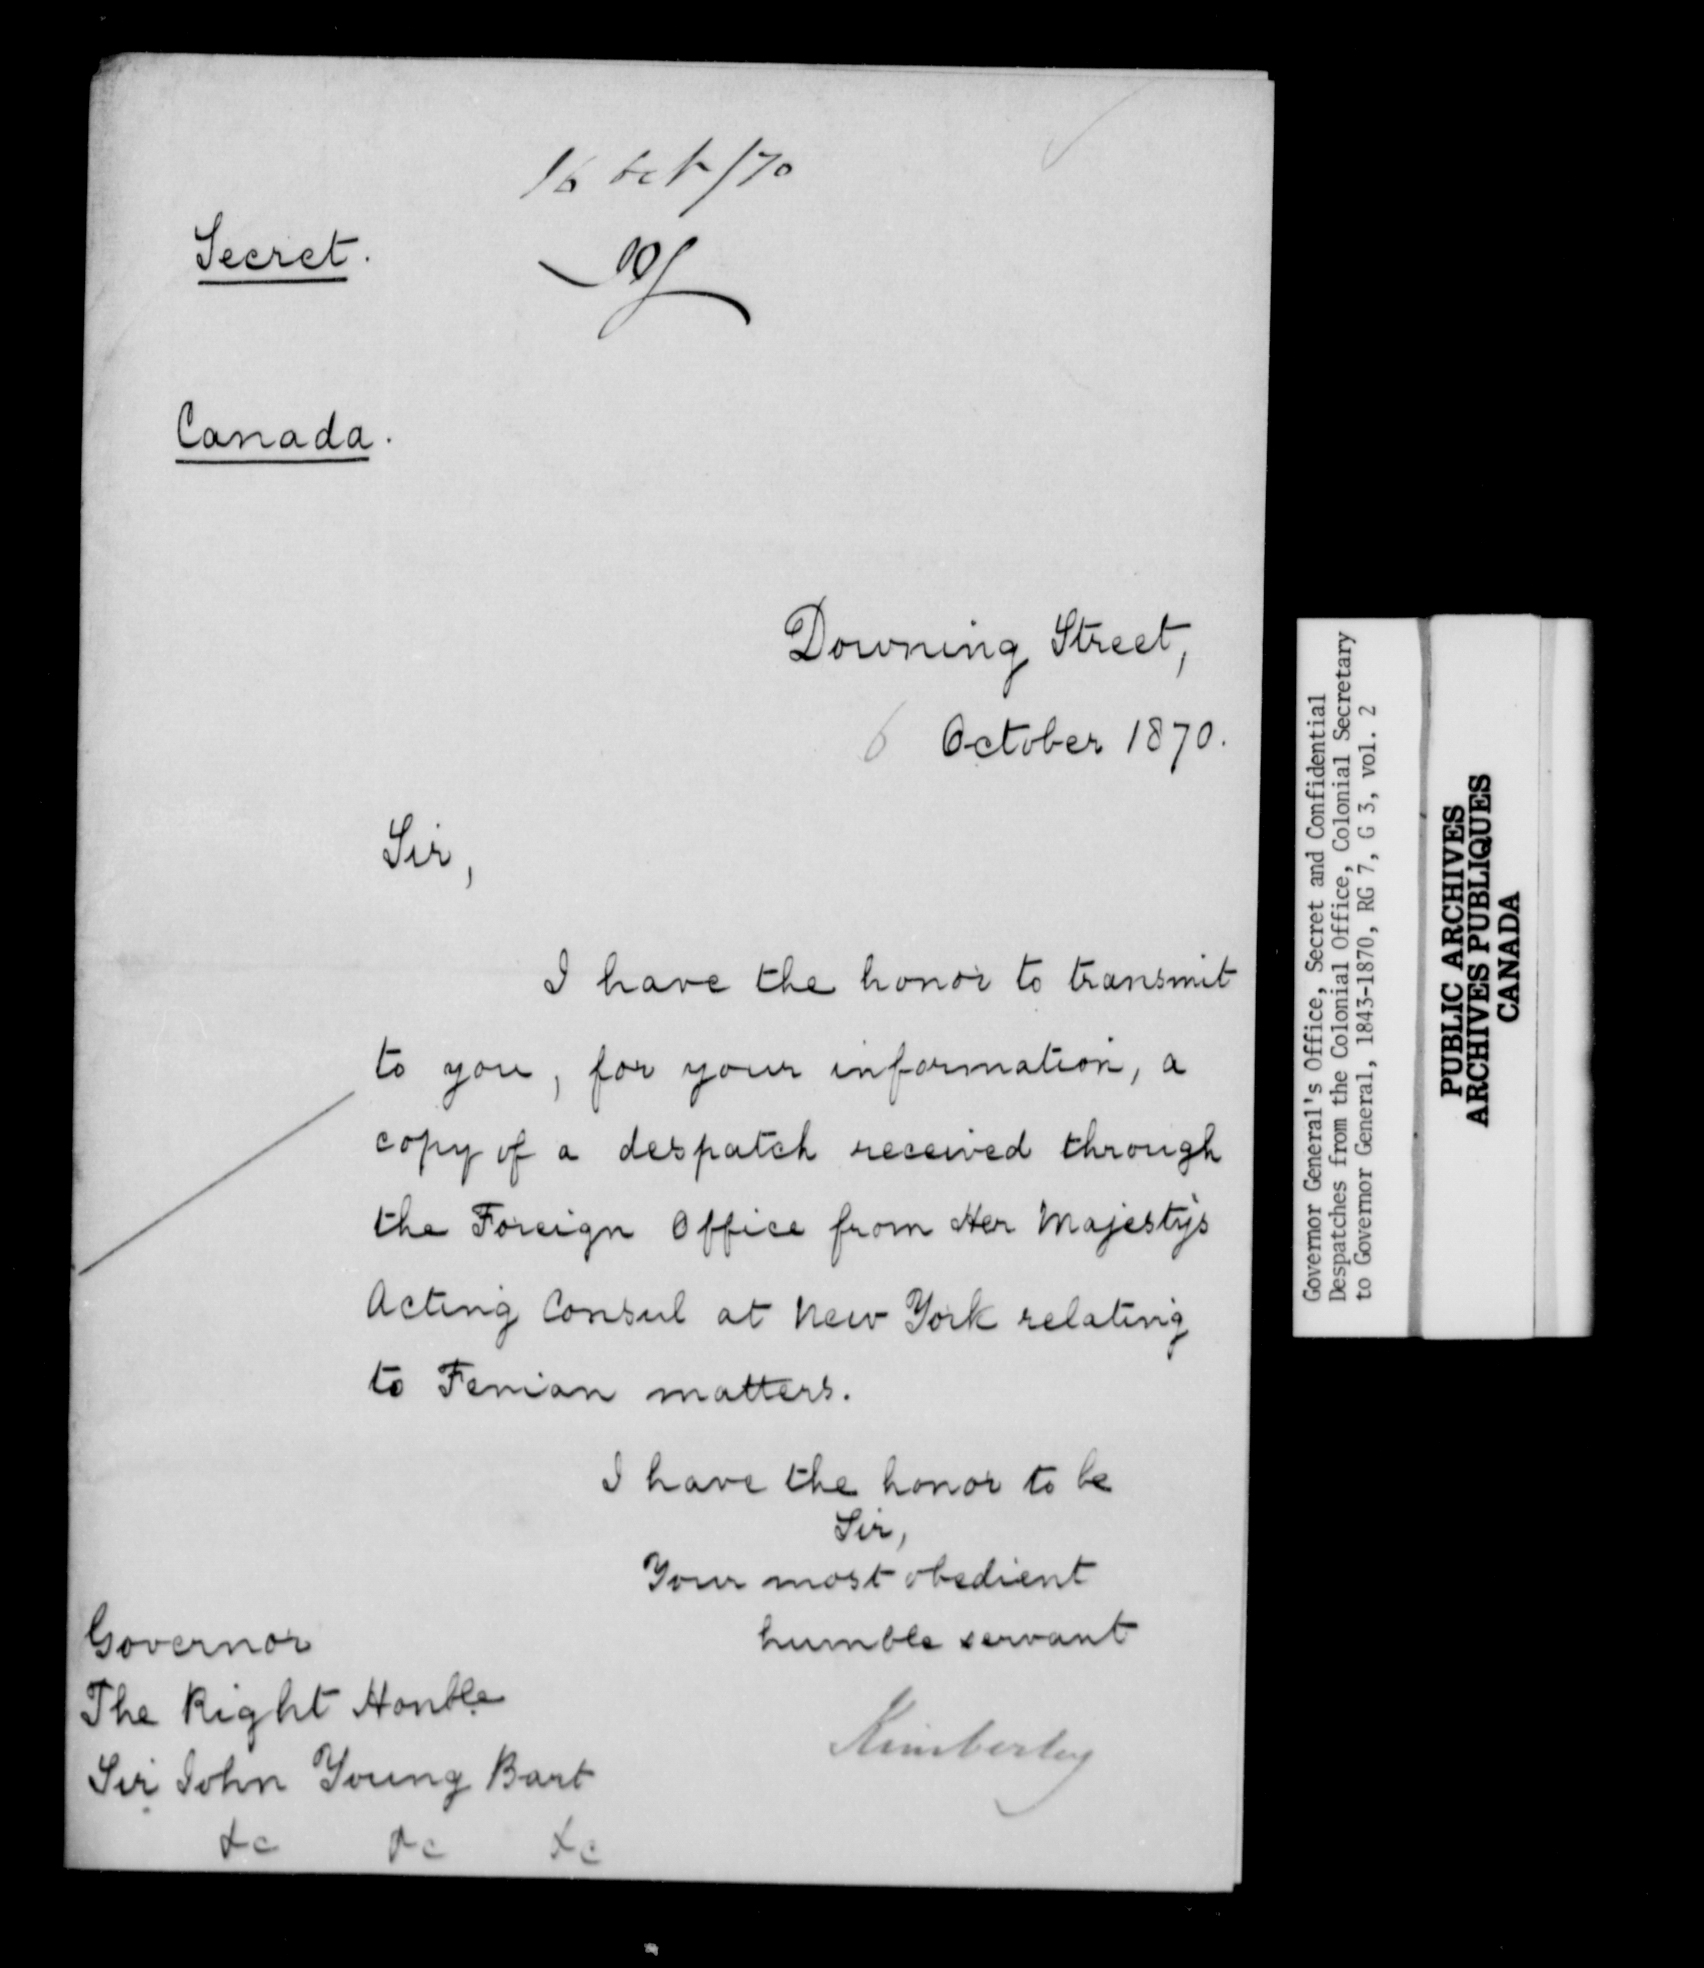 16 Oct/70
Secret.
Canada.
Downing Street,
6 October 1870.
Sir,
I have the honor to transmit
to you, for your information, a
copy of a despatch received through
the Foreign Office from Her Majesty's
Acting Consul at New York relating
to Fenian matters.
I have the honor to be
Sir,
Your most obedient
humble servant
Kimberley
Governor
The Right Honble
Sir John Young Bart
&c &c &c
Governor General's Office, Secret and Confidential
Despatches from the Colonial Office, Colonial Secretary
to Governor General, 1843-1870, RG 7, G 3, vol. 2
PUBLIC ARCHIVES
ARCHIVES PUBLIQUES
CANADA